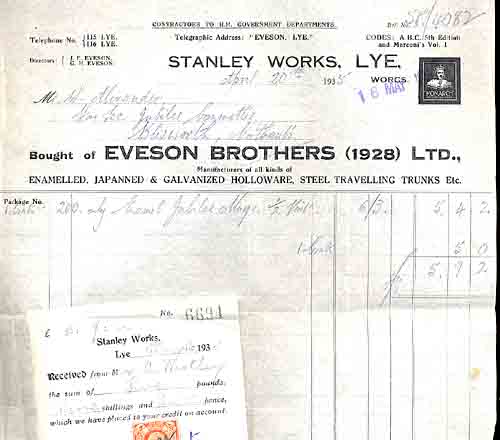 CONTRACTORS TO H.M. GOVERNMENT DEPARTMENTS.
Ref. No. 58/4082
Telephone No. { 115 LYE. 116 LYE.
Telegraphic Address: "EVESON, LYE."
CODES: A B C. 5th Edition and Marconi's Vol. 1
Directors: { J. F. EVESON. G. H. EVESON.
STANLEY WORKS, LYE,
WORCS.
April 20th 1935
18 MAY
MONARCH
M W. Alexander
Hon Sec Jubilee Committee
Blisworth, Northants
Bought of EVESON BROTHERS (1928) LTD.,
Manufacturers of all kinds of
ENAMELLED, JAPANNED & GALVANIZED HOLLOWARE, STEEL TRAVELLING TRUNKS Etc.
Package No.
200 only Enamel Jubilee Mugs 1/2 Pint 6/3 5. 4. 2
5 0
5. 9 2
No. 6694
Stanley Works,
Lye 193
Received from M
the sum of Five pounds,
shillings and pence,
which we have placed to your credit on account.